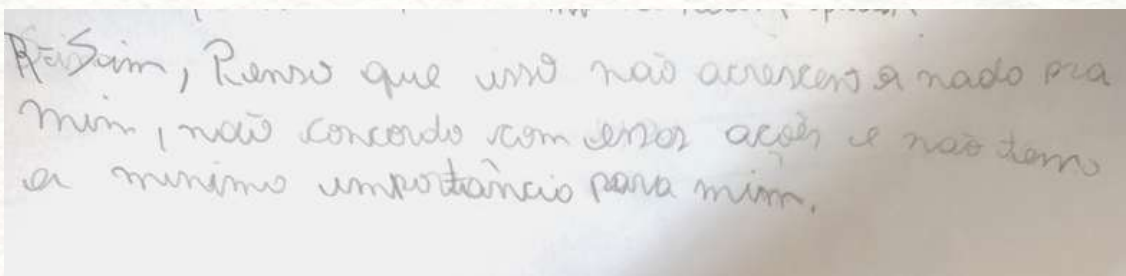 R= Sim, Penso que isso não acrescenta nada pra
mim, não concordo com essas ações e não tem
a minima importância para mim.